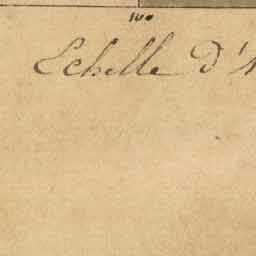 100
Echelle d'